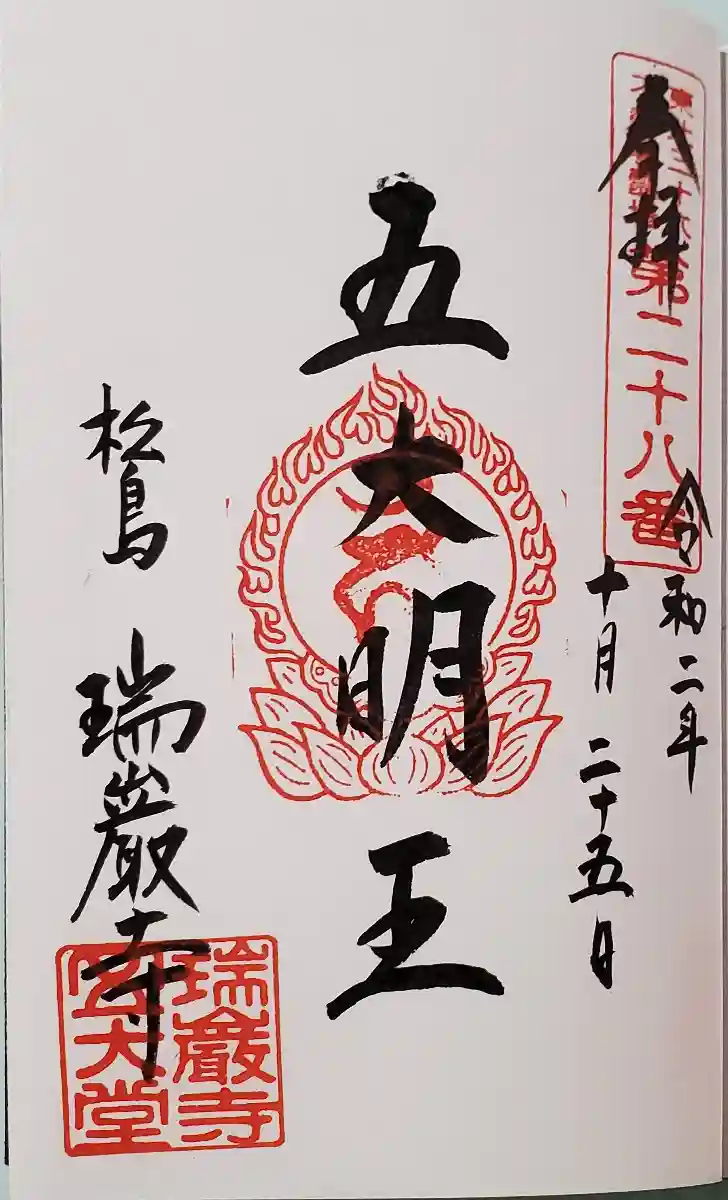 奉拝
第二十八番
令和二年
十月二十五日
五大明王
松島 瑞巌寺
瑞巌寺
五大堂